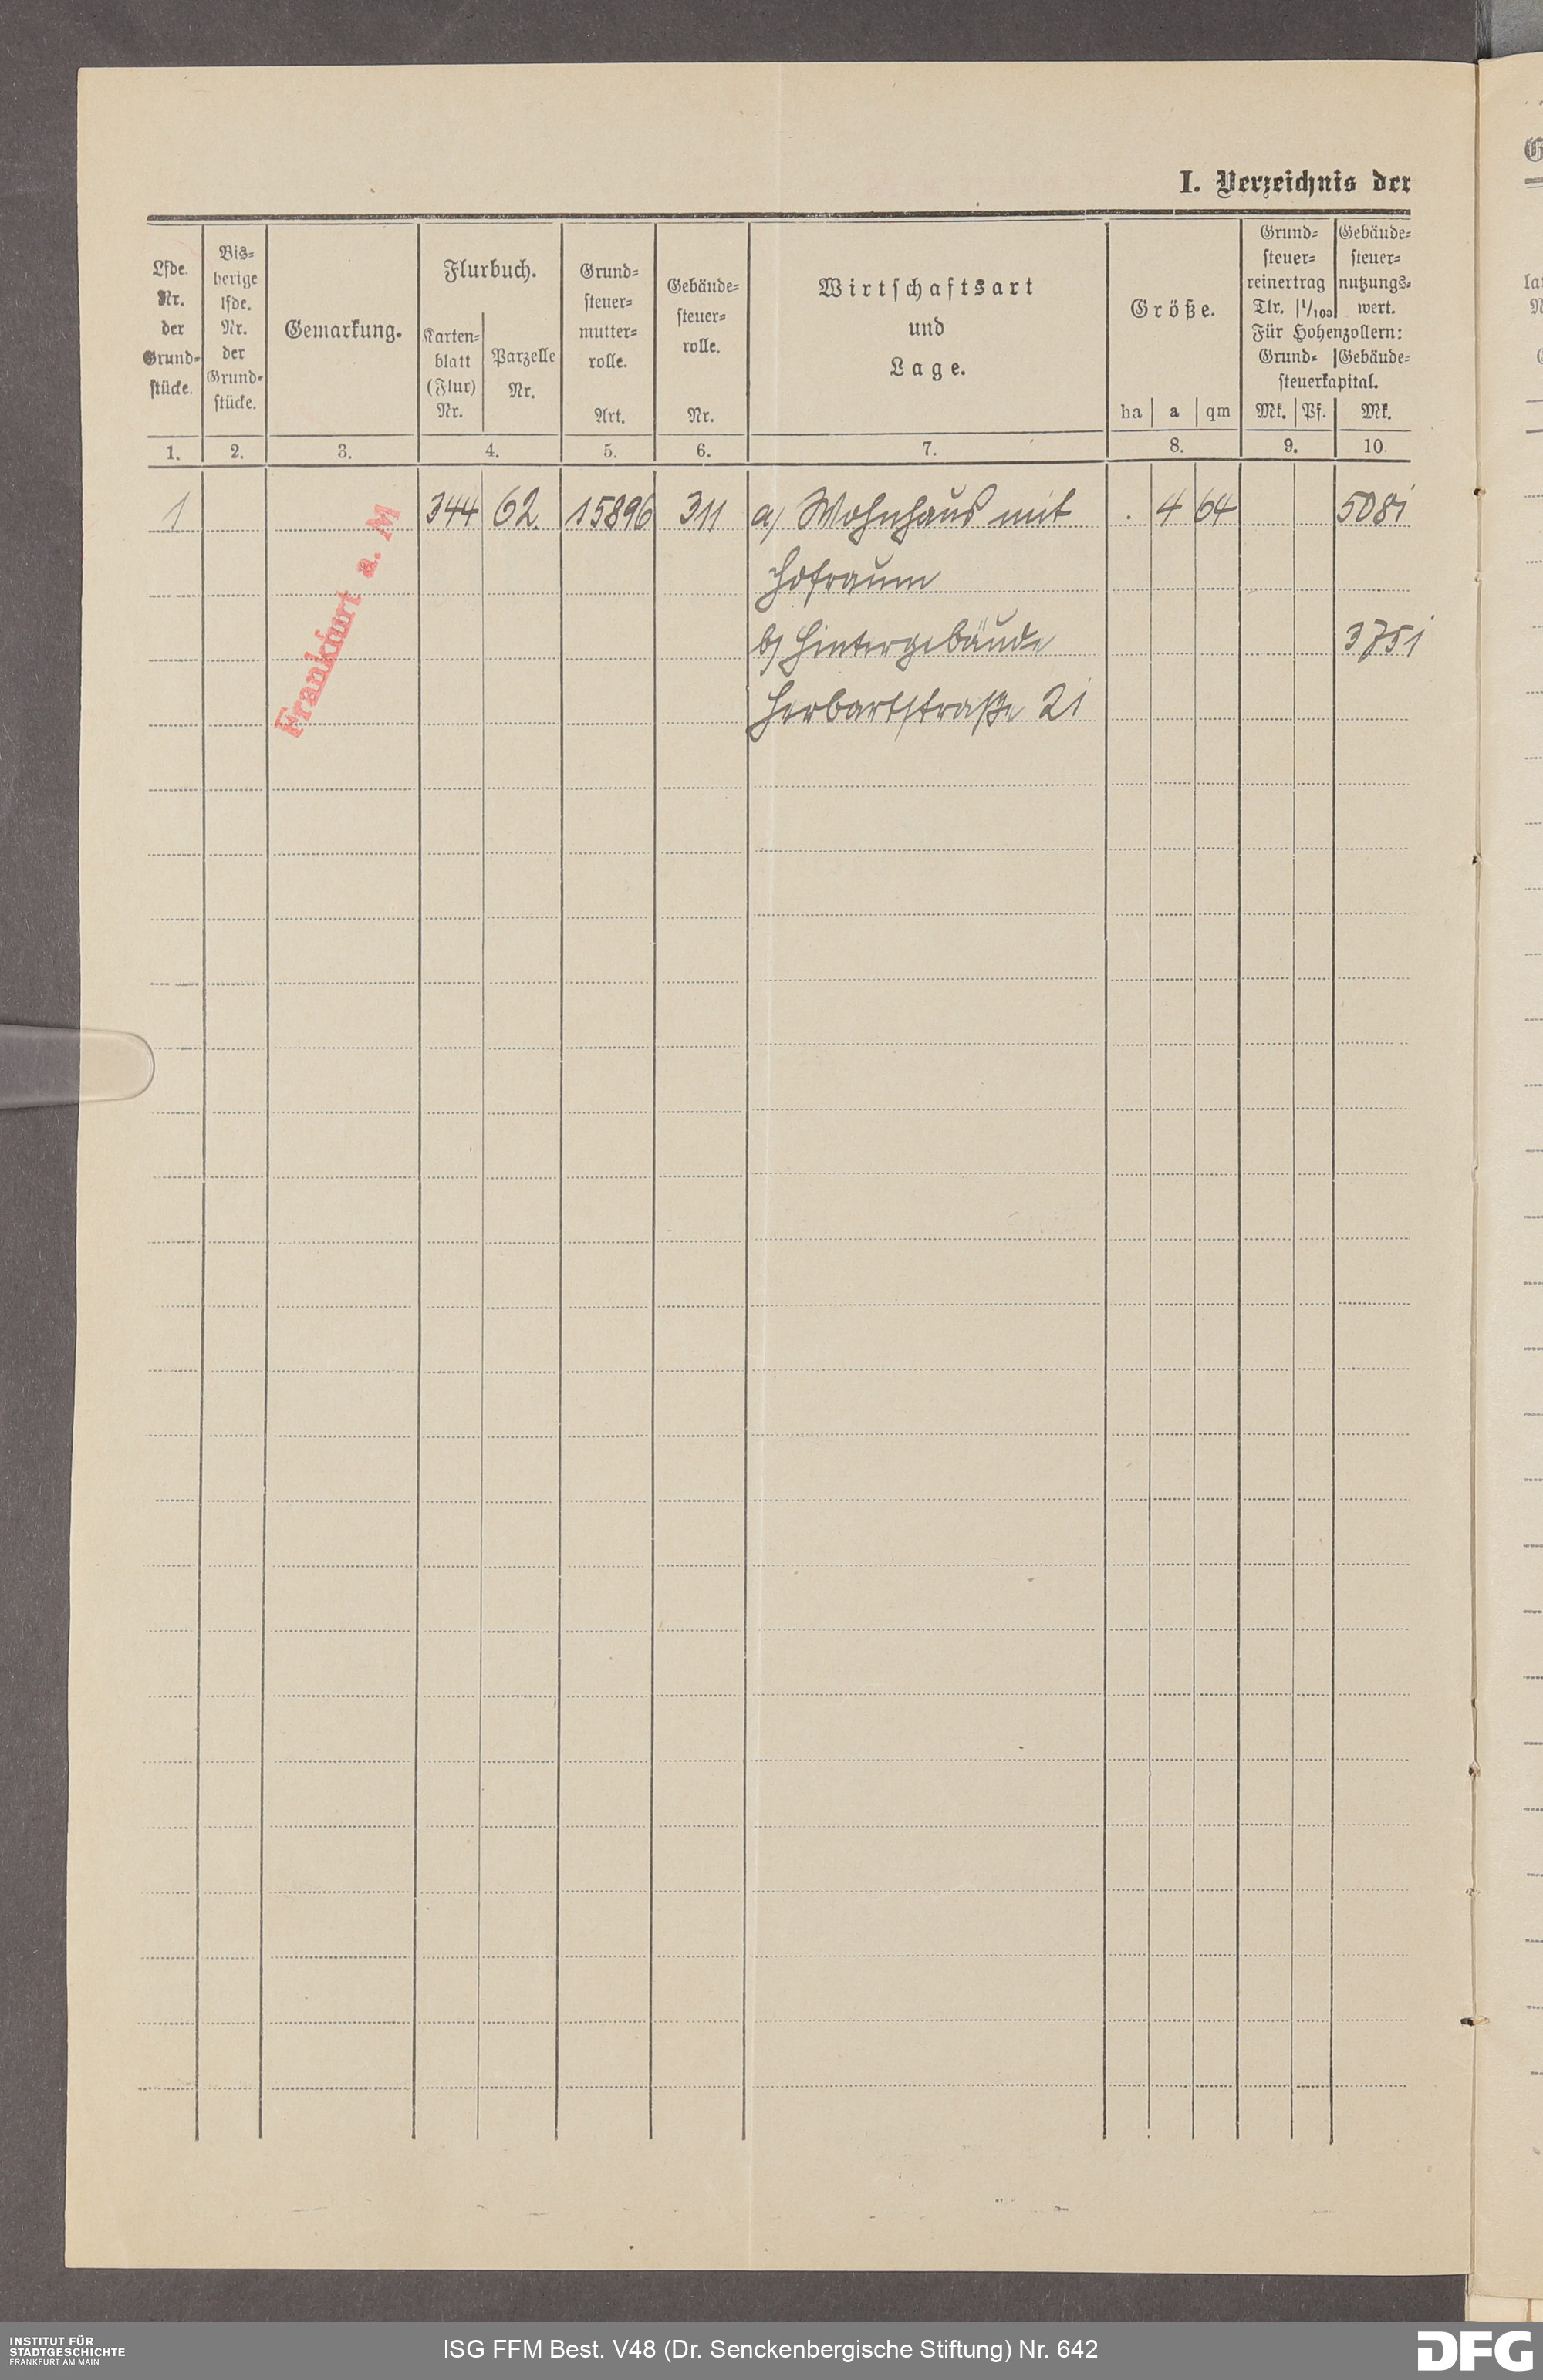 I. Verzeichnis der
Lfde. Nr. der Grund- stücke.
Bis- herige lfde. Nr. der Grund- stücke.
Gemarkung.
Flurbuch.
Karten- blatt (Flur) Nr.
Parzelle Nr.
Grund- steuer- mutter- rolle. Art.
Gebäude- steuer- rolle. Nr.
Wirtschaftsart
und
Lage.
Größe.
ha a qm
Grund- steuer- reinertrag Tlr. 1/100
Gebäude- steuer- nutzungs- wert.
Für Hohenzollern:
Grund- Gebäude-
steuerkapital.
Mk. Pf. Mk.
1. 2. 3. 4. 5. 6. 7. 8. 9. 10.
1 344 62. 15896 311 a) Wohnhaus mit . 4 64 5081
Hofraum
b) Hintergebäude 3751
Herbartstraße 21
Frankfurt a. M
INSTITUT FÜR
STADTGESCHICHTE
FRANKFURT AM MAIN
ISG FFM Best. V48 (Dr. Senckenbergische Stiftung) Nr. 642
DFG